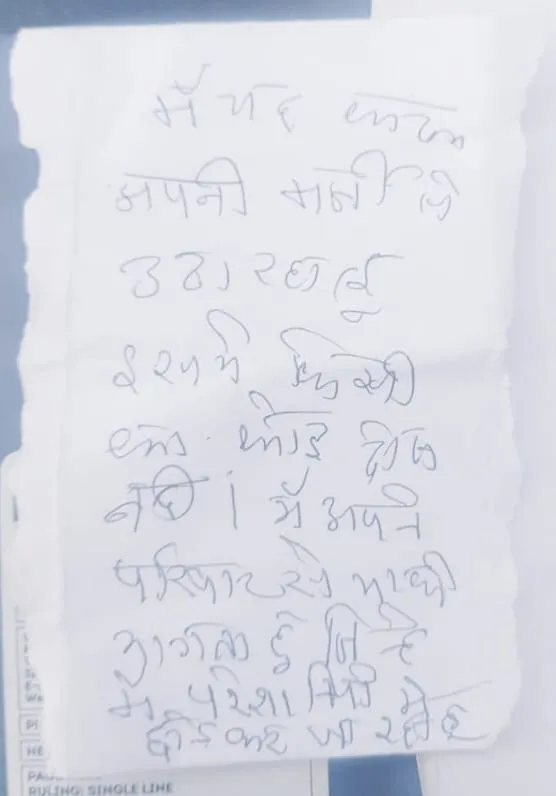 मैं यह
अपनी मर्जी से
उठा रहा हूँ
इसमे किसी
का कोई दोष
नहि । मैं अपने
परिवार से माफी
मागता हूँ जिन्हे
मैं में
छोड कर जा रहा हूँ
RULING: SINGLE LINE